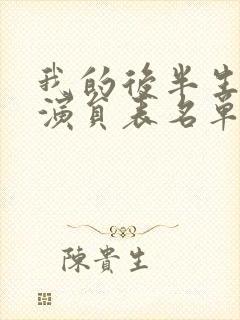 我的後半生
演員表名單
陳貴生